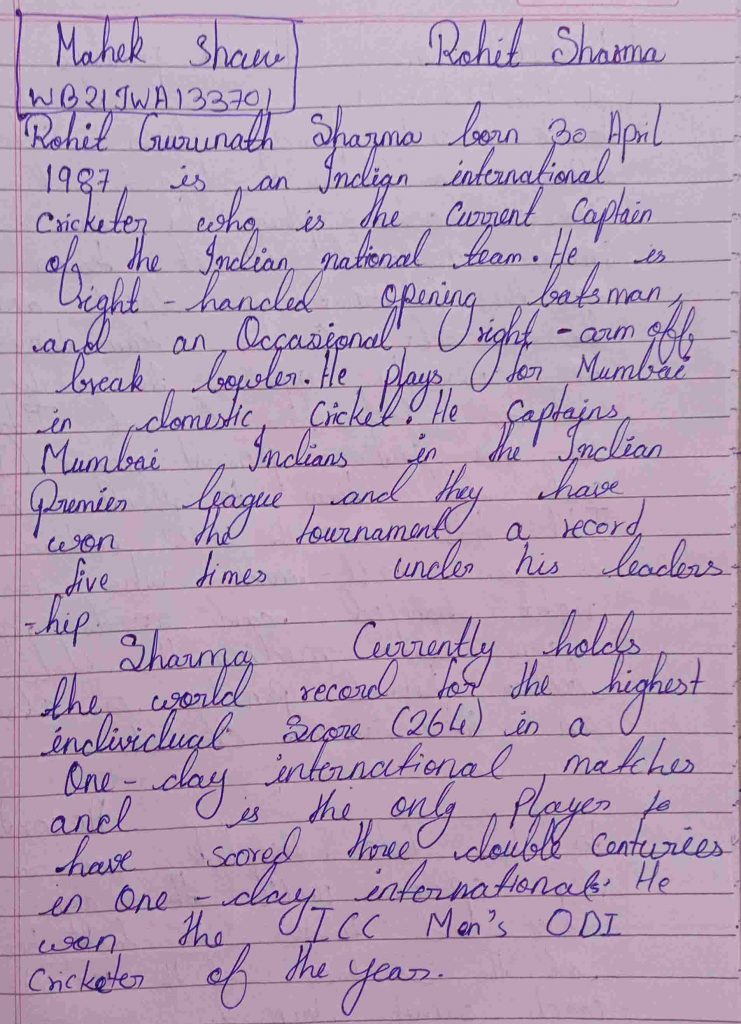 Mahek Shaw
Rohit Sharma
WB21JWA133701
Rohit Gurunath Sharma born 30 April
1987, is an Indian international
Cricketer who is the Current Captain
of the Indian national team. He is
right - handed opening batsman,
and an Occasional right - arm off
break bowler. He plays for Mumbai
in domestic Cricket. He Captains
Mumbai Indians in the Indian
Premier league and they have
won the tournament a record
five times under his leaders
-hip.
Sharma Currently holds
the world record for the highest
individual Score (264) in a
One - day international matches
and is the only Player to
have scored three double Centuries
in One - day internationals. He
won the ICC Men's ODI
Cricketer of the year.